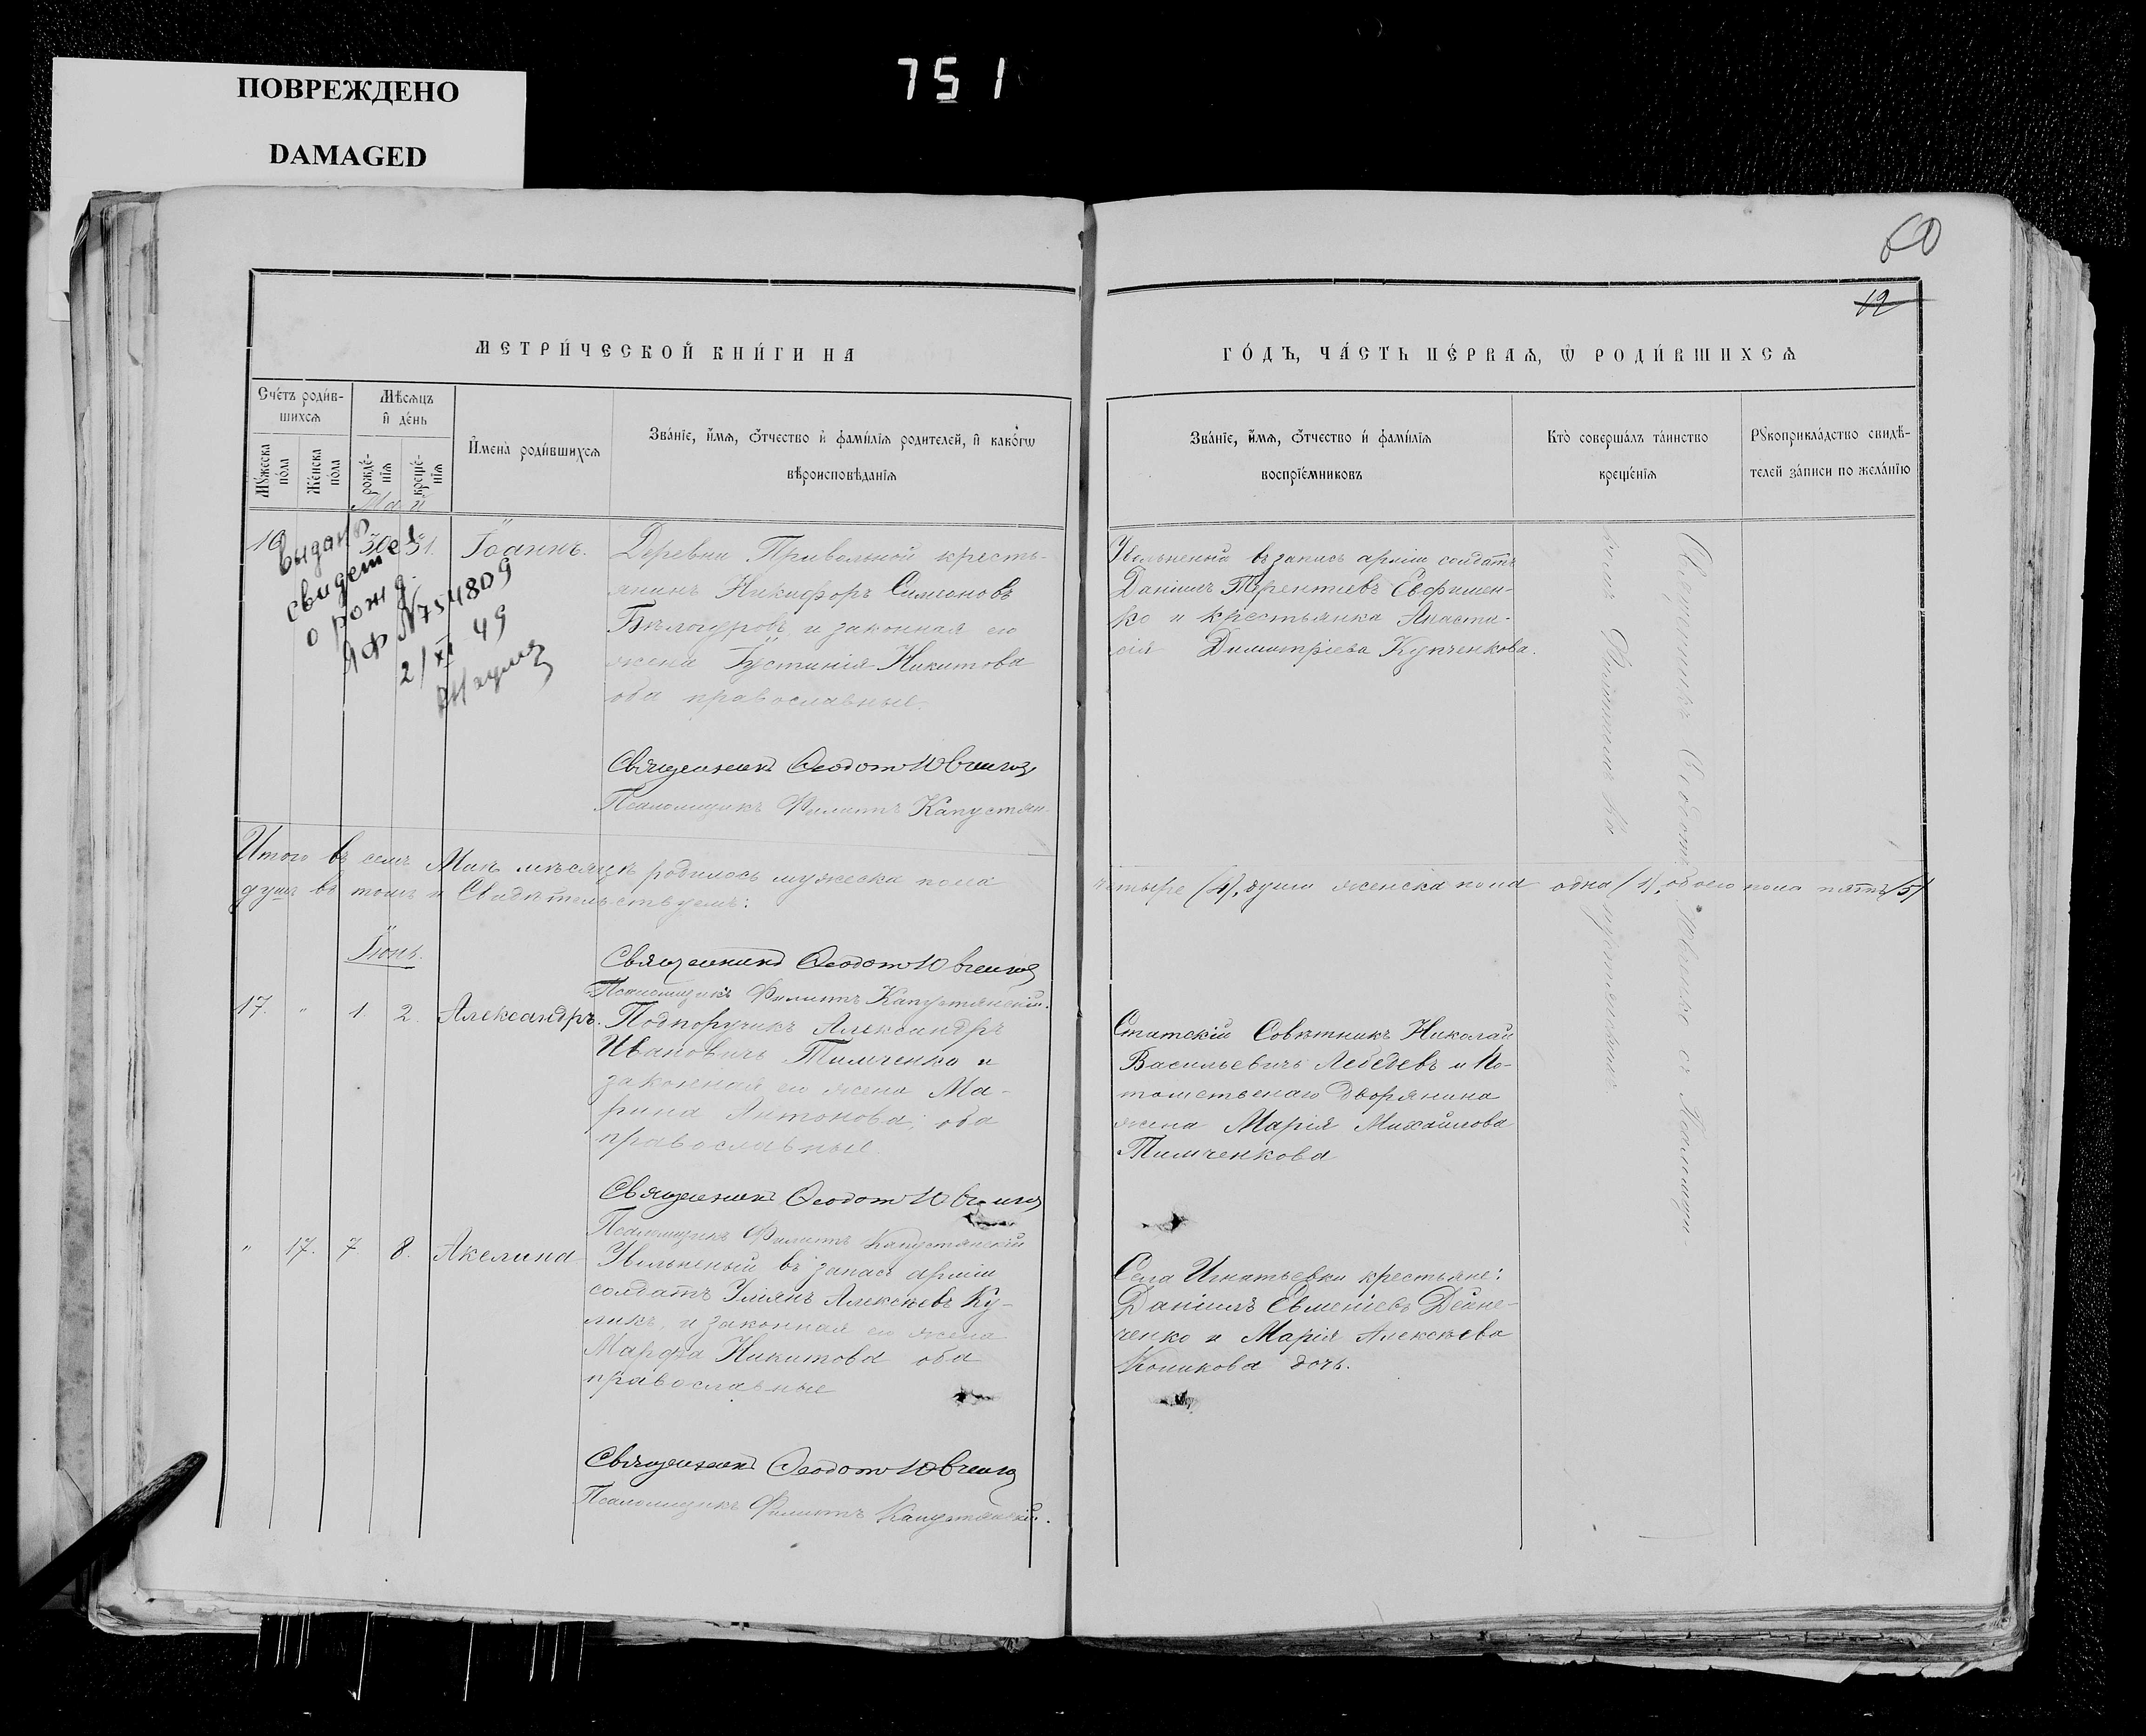 ПОВРЕЖДЕНО
DAMAGED
751
60
12
МЕТРИ́ЧЕСКОЙ КНИ́ГИ НА
ГО́ДЪ, ЧА́СТЬ ПЕ́РВАѦ, Ѡ҆ РОДИ́ВШИХСѦ
Сче́тъ роди́в-
шихсѧ
Мѣ́сѧцъ
и҆ де́нь
Мꙋ́жеска
по́ла
Же́нска
по́ла
рожде́-
нїѧ
креще́-
нїѧ
И҆мена̀ роди́вшихсѧ
Зва́нїе, и҆́мѧ, ѻ҆́тчество и҆ фами́лїѧ родителей, и҆ како́гѡ
вѣроисповѣ́данїѧ
Зва́нїе, и҆́мѧ, ѻ҆́тчество и҆ фами́лїѧ
воспрїе́мниковъ
Кто̀ соверша́лъ та́инство
креще́нїѧ
Рꙋкоприкла́дство свидѣ́-
телей за́писи по жела́нїю
Май
16 30 31. Іоаннъ.
Деревни Привольной кресть-
янинъ Никифоръ Симеоновъ
Бѣлогуровъ и законная его
жена Іустинія Никитова
оба православные.
Священникъ Ѳеодотъ Ювченко
Псаломщикъ Филиппъ Капустян-
выдано
свидет
о рожд.
ЯФ №754809
2/XI 49
Уволненый въ запасъ арміи солдатъ
Даніилъ Терентіевъ Евфимен-
ко и крестьянка Анаста-
сія Димитріева Купченкова.
Священникъ Ѳеодотъ Ювченко съ Псаломщи-
комъ Филиппомъ Ка-
пустянскимъ.
Итого въ семъ Маѣ мѣсяцѣ родилось мужеска пола
четыре (4), души женска пола одна (1), обоего пола пять (5)
душъ въ томъ и Свидѣтельствуемъ:
Священникъ Ѳеодотъ Ювченко
Псаломщикъ Филиппъ Капустянскій.
Іюнь.
17. " 1. 2. Александръ.
Подпоручикъ Александръ
Ивановичъ Тимченко и
законная его жена Ма-
рина Антонова; оба
православные.
Священникъ Ѳеодотъ Ювченко
Псаломщикъ Филиппъ Капустянскій
Статскій Совѣтникъ Николай
Васильевичъ Лебедевъ и По-
томственаго Дворянина
жена Марія Михайлова
Тимченкова
" 17. 7 8. Акелина
Уволненый въ запасъ арміи
солдатъ Уліянъ Алексѣевъ Ку-
ликъ, и законная его жена
Марфа Никитова оба
православные
Священникъ Ѳеодотъ Ювченко
Псаломщикъ Филиппъ Капустянскій.
Села Игнатьевки крестьяне:
Даніилъ Евменіевъ Дейне-
ченко и Марія Алексѣева
дочь.